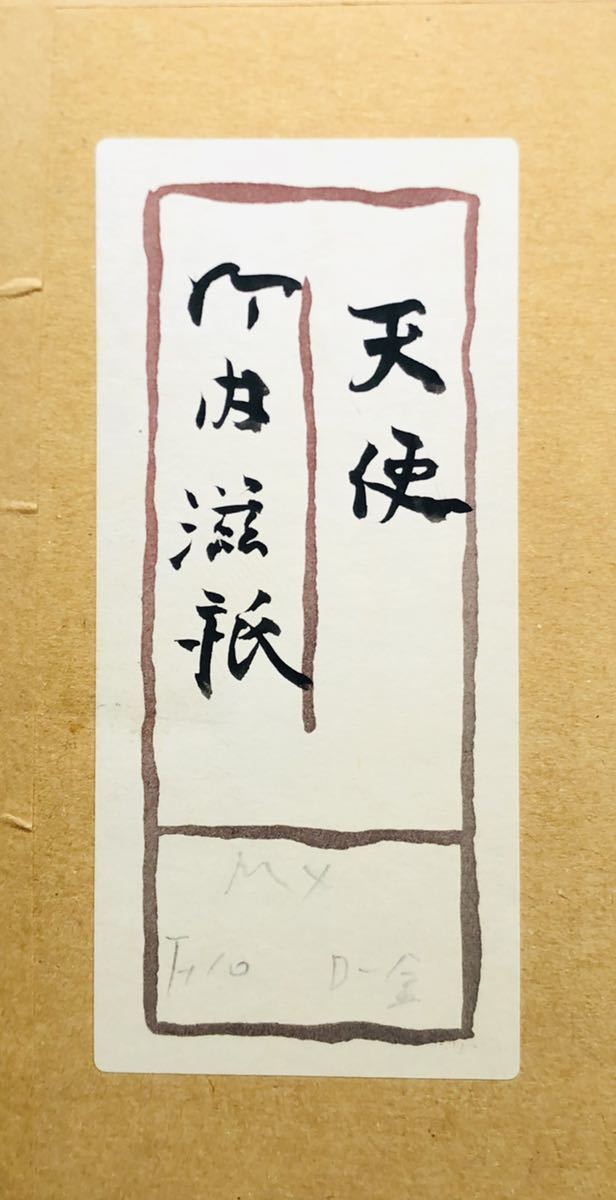 天使
竹内滋祇
MX
F10 D-金